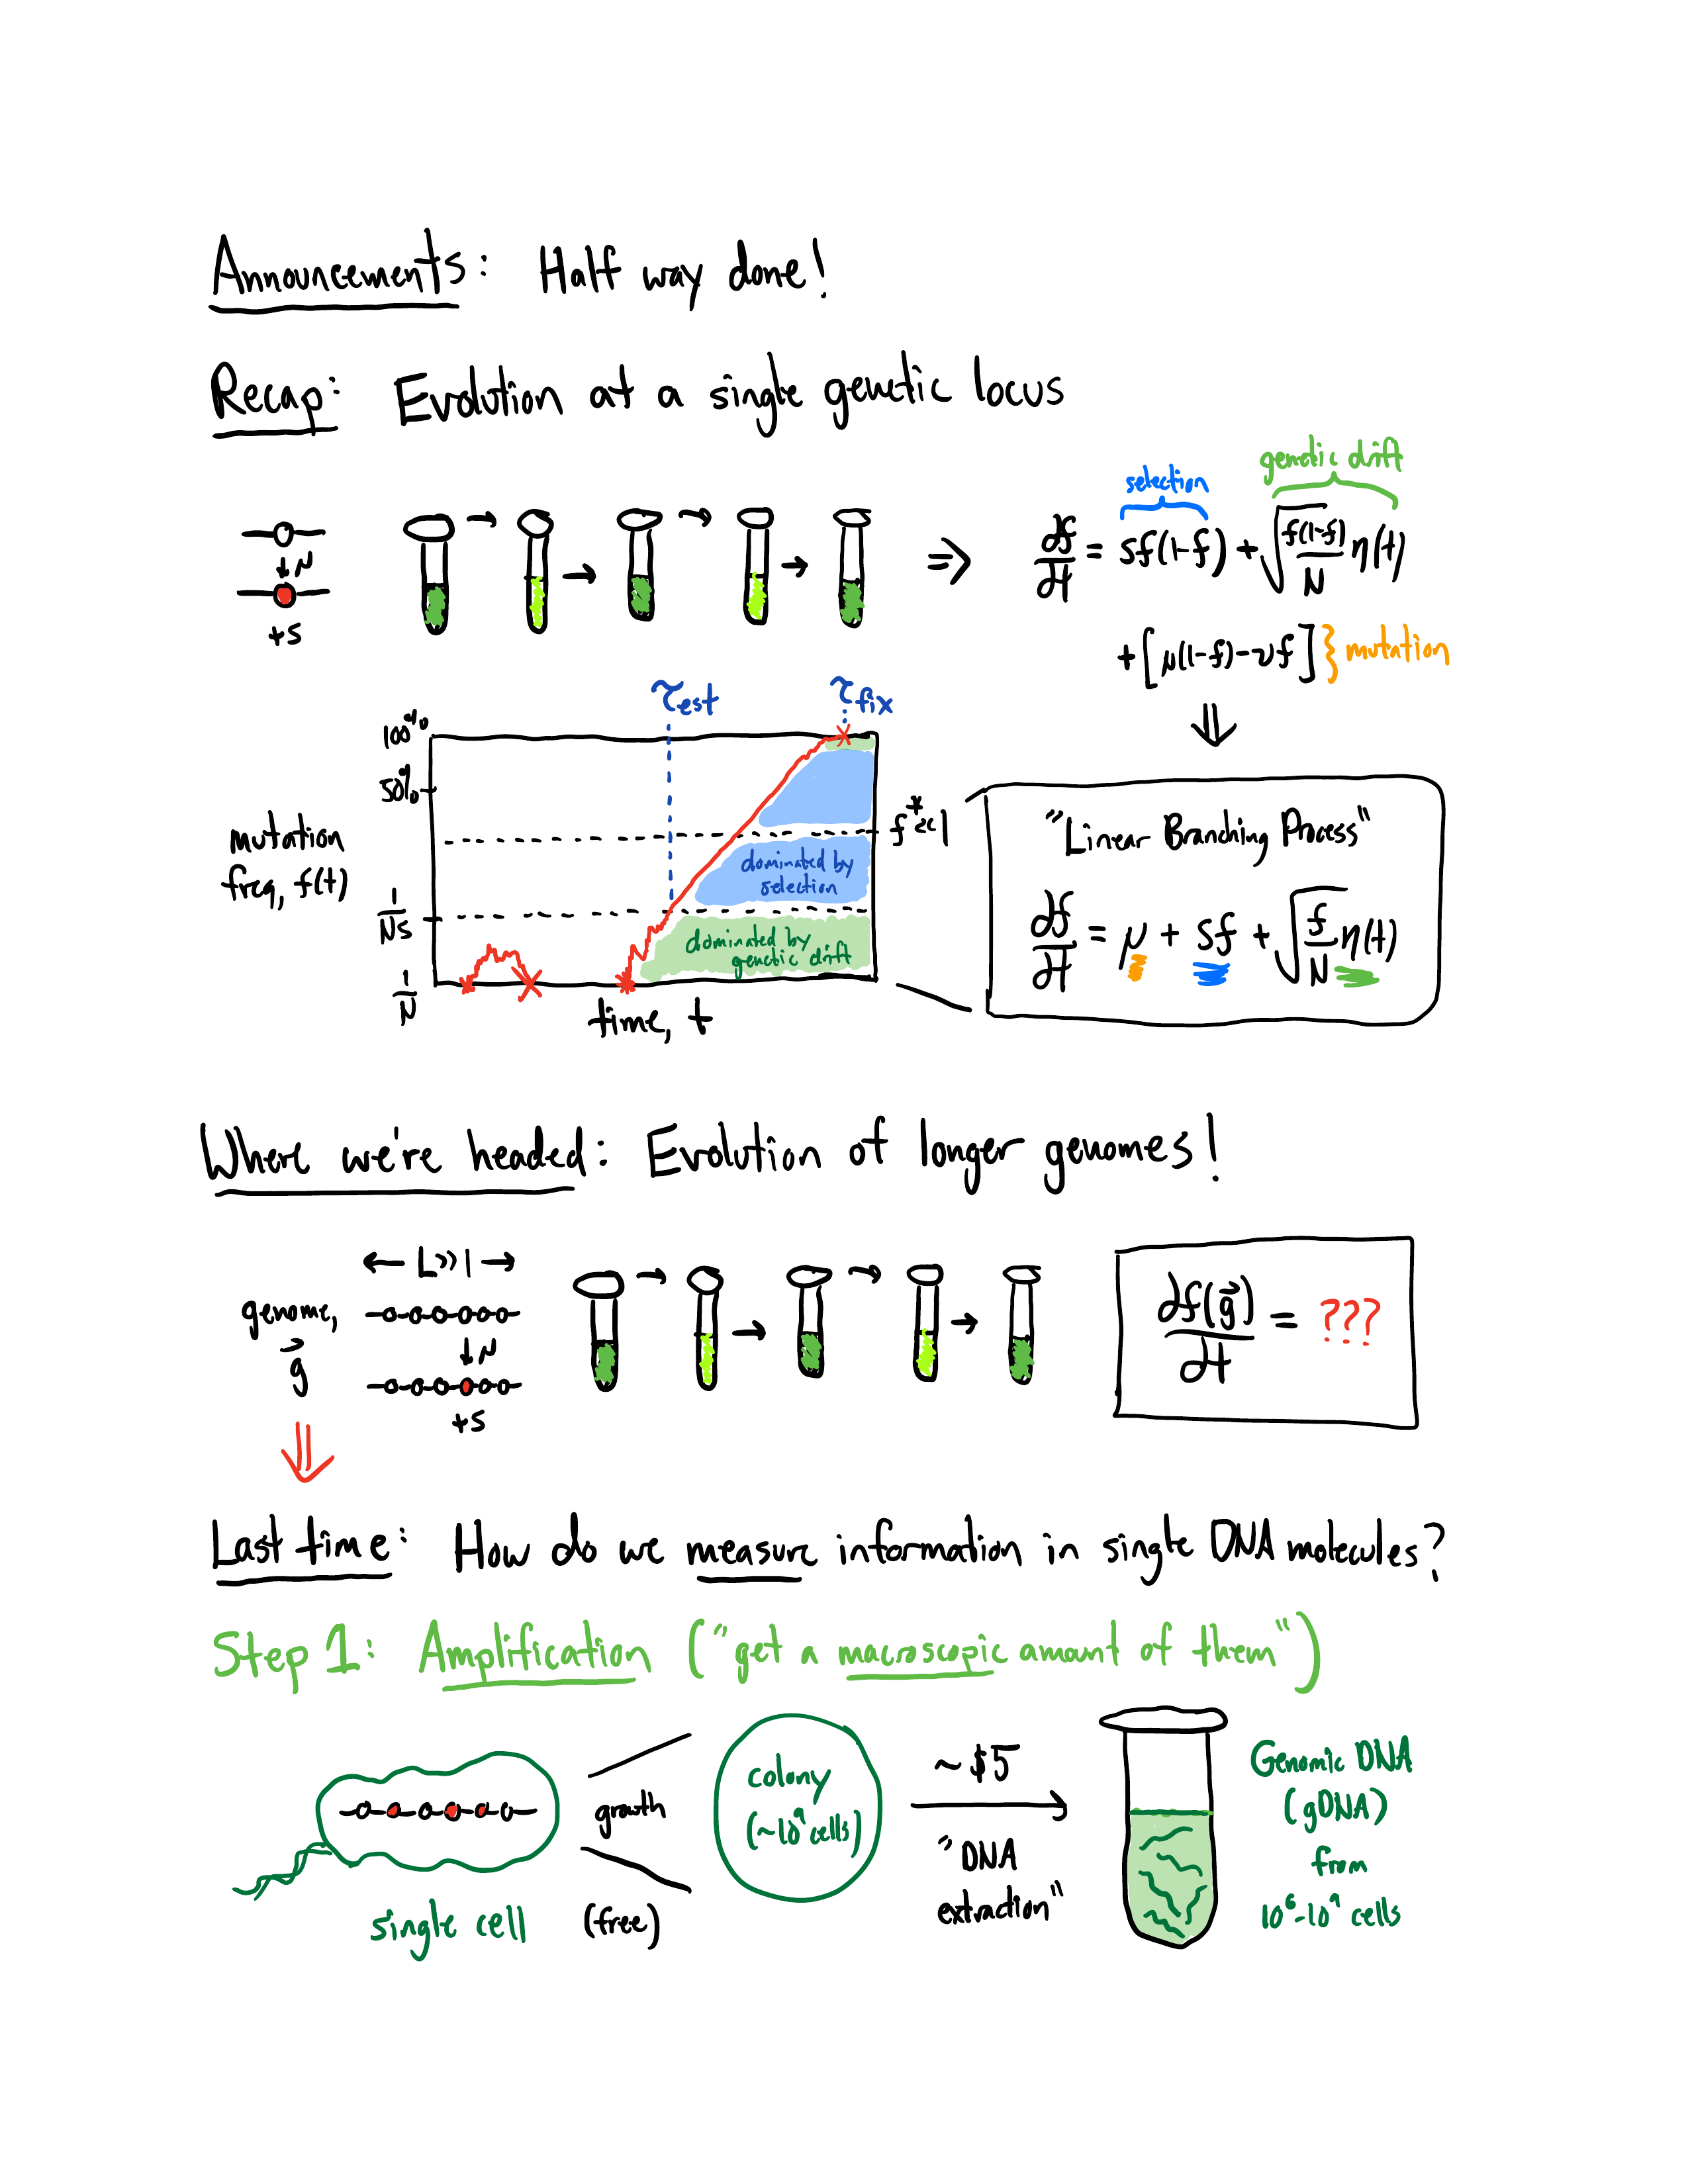 Announcements: Half way done!
Recap: Evolution at a single genetic locus
selection
genetic drift
↓μ
+s
⇒ df/dt = sf(1-f) + √(f(1-f)/N) η(t)
+ [μ(1-f) - νf] } mutation
τest
τfix
100%
50%
mutation
freq, f(t)
f* ≪ 1
1/Ns
1/N
dominated by
selection
dominated by
genetic drift
time, t
"Linear Branching Process"
df/dt = μ + sf + √(f/N) η(t)
Where we're headed: Evolution of longer genomes!
← L≫1 →
genome,
g⃗
↓μ
+s
∂f(g⃗)/∂t = ???
Last time: How do we measure information in single DNA molecules?
Step 1: Amplification ("get a macroscopic amount of them")
single cell
growth
(free)
colony
(~10⁹ cells)
~$5
"DNA
extraction"
Genomic DNA
(gDNA)
from
10⁶-10⁹ cells